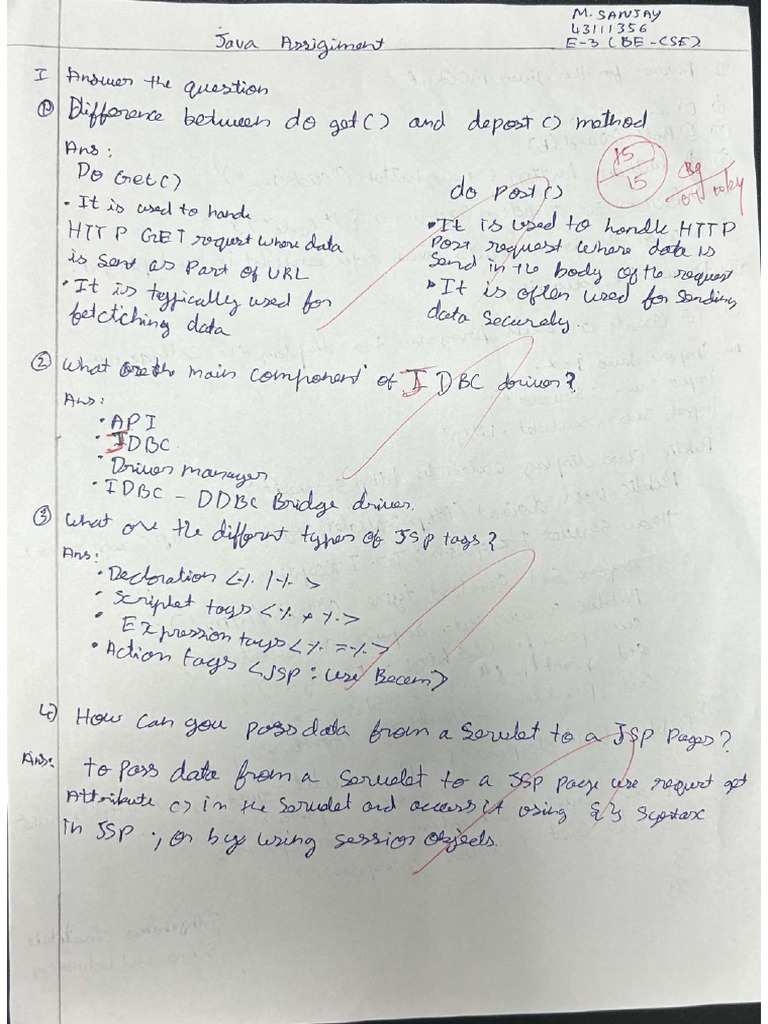 M. SANJAY
43111356
E-3 (BE-CSE)
Java Assigiment
I Answer the question
① Difference between do get() and depost() method
Ans:
Do Get()
• It is used to hande
HTTP GET request where data
is sent as part of URL
• It is teypically used for
fetctiching data
do post()
• It is used to handle HTTP
Post request where data is
send in the body of the request
• It is often used for sending
data securely.
15/15
② What are the main component of JDBC driver?
Ans:
• API
• JDBC
• Driver manager
• IDBC - DDBC Bridge driver.
③ What are the different types of JSP tags?
Ans:
• Decloration <% | % >
• Scriplet tags <% + %>
• Expression tags <% = %>
• Action tags <JSP: use Becem>
4) How can you pass data from a servlet to a JSP pages?
Ans: to pass data from a servlet to a JSP page use request get
Attribute () in the servlet and access it using ${} Syntax
in JSP ., or by using session objects.